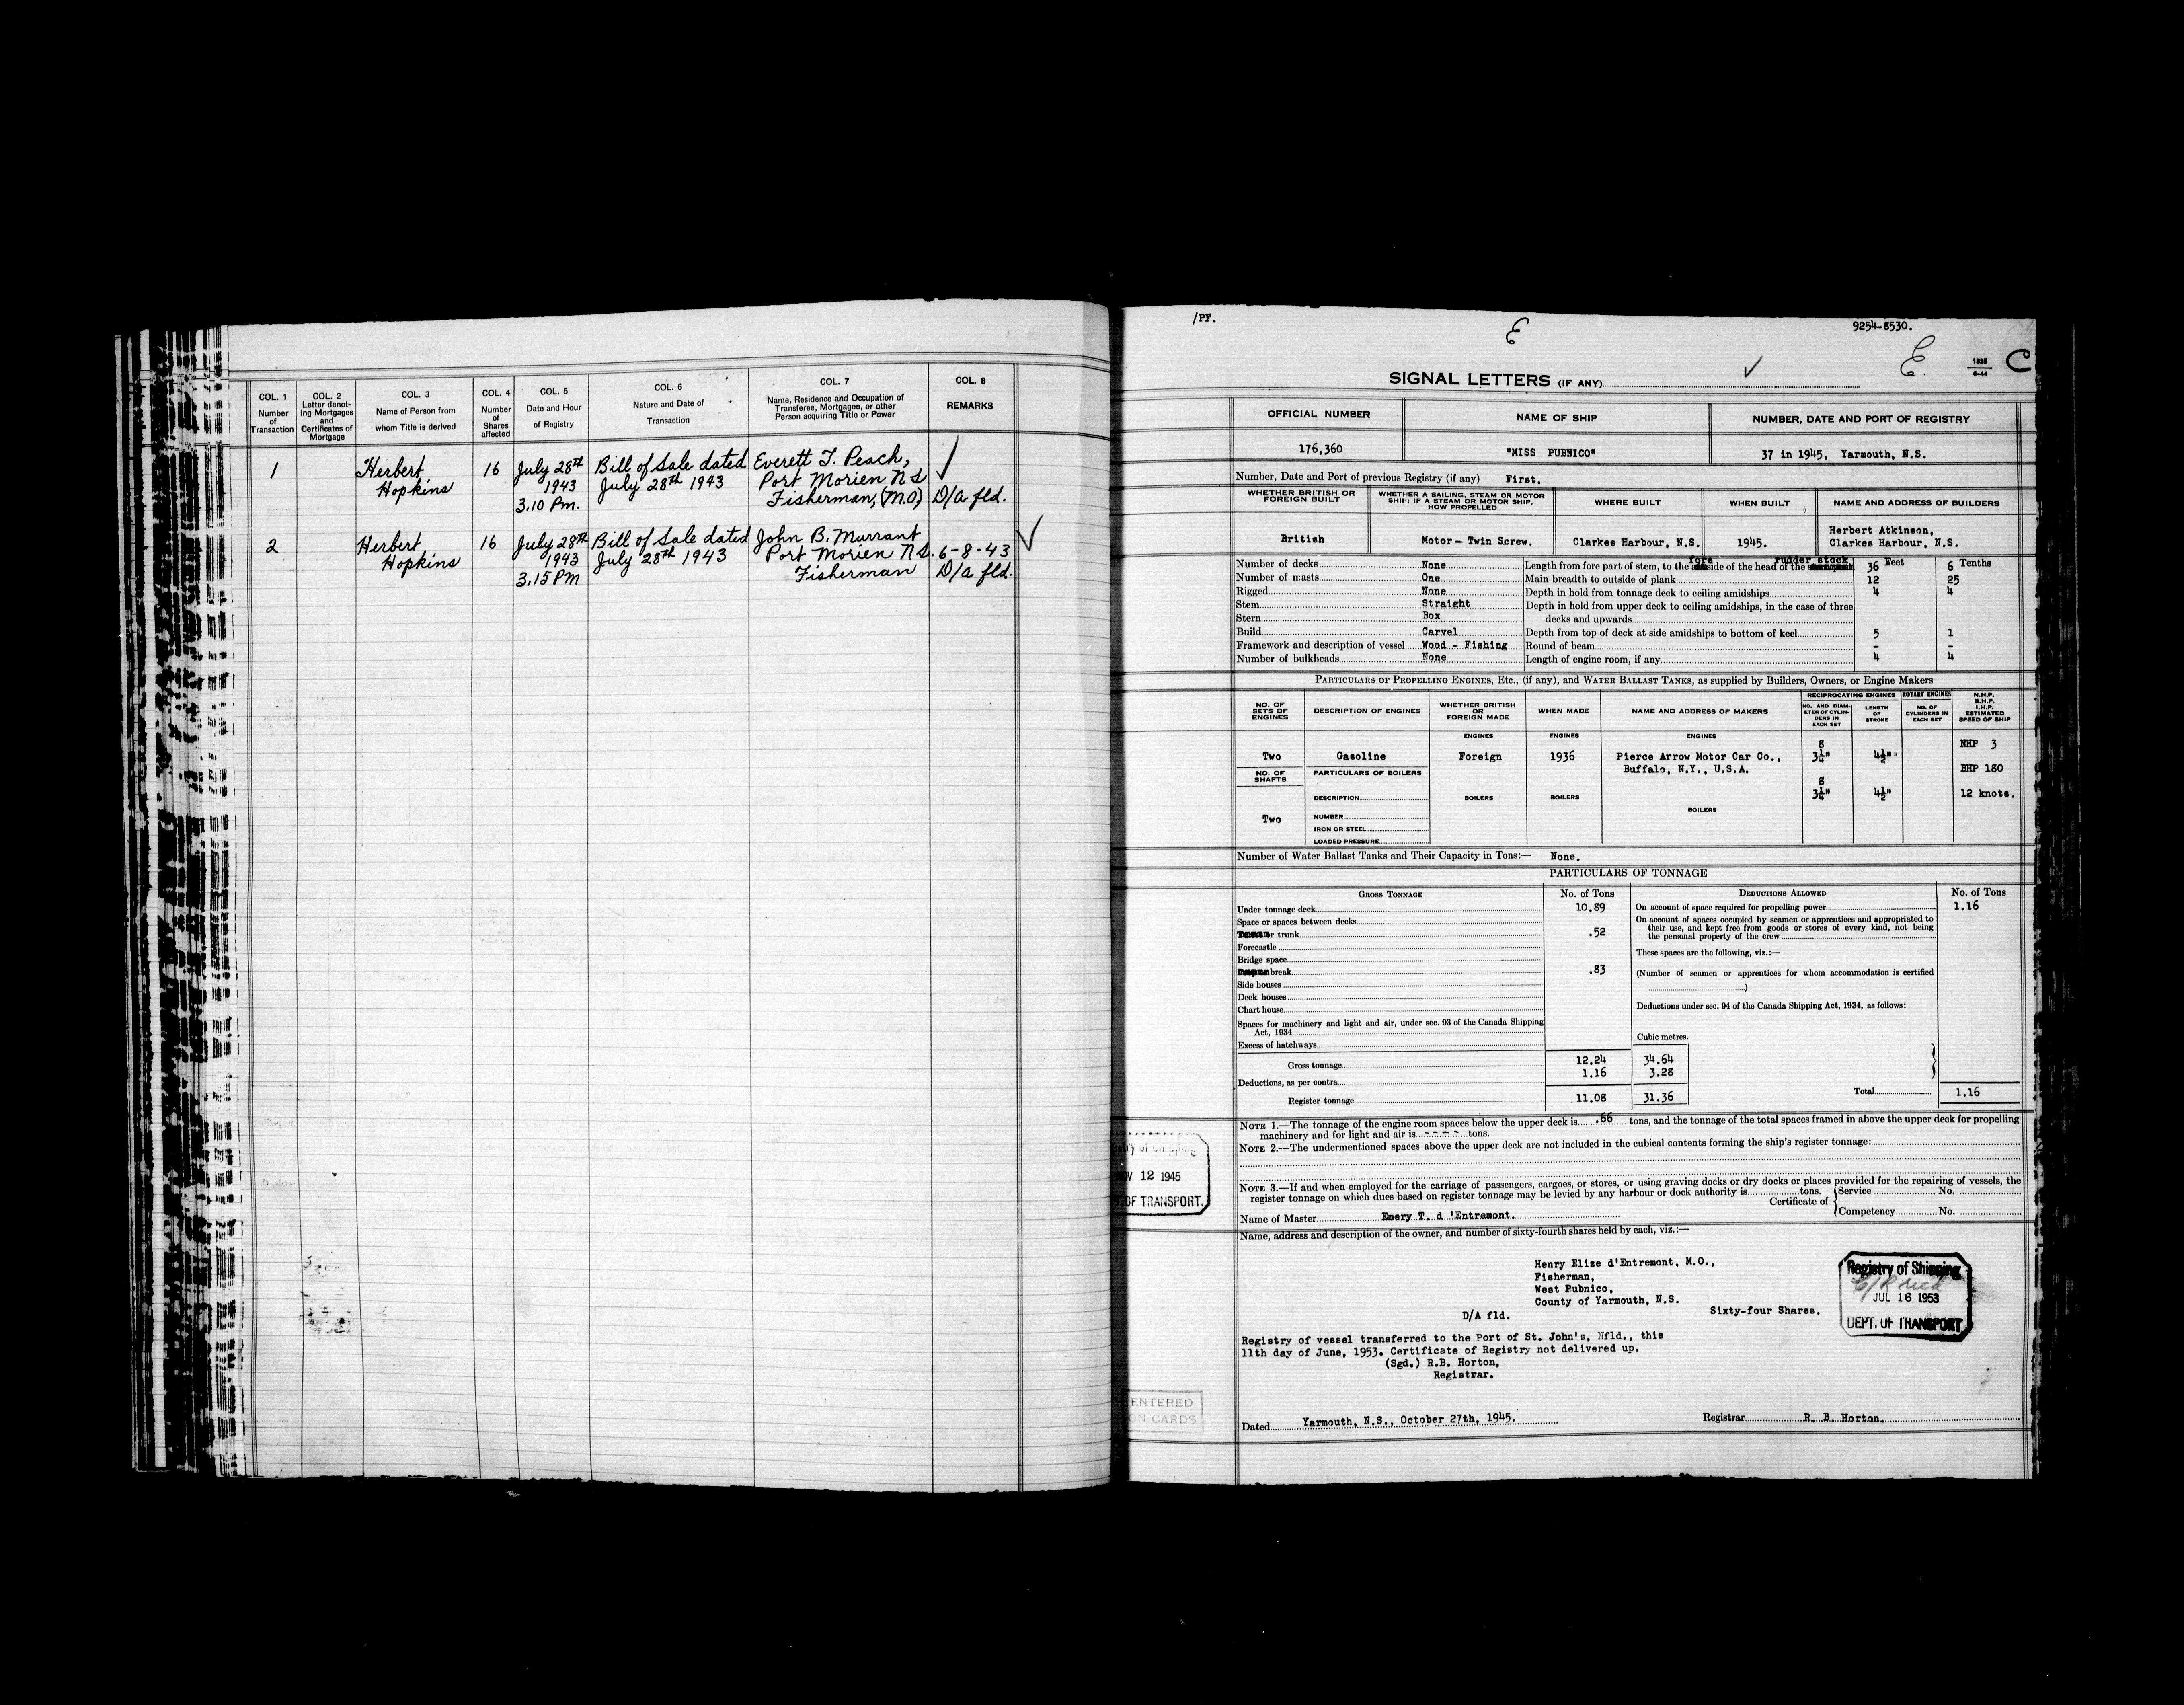 COL. 1 COL. 2 COL. 3 COL. 4 COL. 5 COL. 6 COL. 7 COL. 8
Number of Transaction
Letter denoting Mortgages and Certificates of Mortgage
Name of Person from whom Title is derived
Number of Shares affected
Date and Hour of Registry
Nature and Date of Transaction
Name, Residence and Occupation of Transferee, Mortgagee, or other Person acquiring Title or Power
REMARKS
1 Herbert 16 July 28th Bill of Sale dated Everett T. Peach,
Hopkins 1943 July 28th 1943 Port Morien N S
3.10 Pm. Fisherman, (M.O) D/a fld.
2 Herbert 16 July 28th Bill of Sale dated John B. Murrant
Hopkins 1943 July 28th 1943 Port Morien N S. 6-8-43
3.15 PM Fisherman D/a fld.
/PF. E 9254-8530.
E. C
6-44
SIGNAL LETTERS (IF ANY)
OFFICIAL NUMBER NAME OF SHIP NUMBER, DATE AND PORT OF REGISTRY
176,360 "MISS PUBNICO" 37 in 1945, Yarmouth, N.S.
Number, Date and Port of previous Registry (if any) First.
WHETHER BRITISH OR FOREIGN BUILT
WHETHER A SAILING, STEAM OR MOTOR SHIP; IF A STEAM OR MOTOR SHIP, HOW PROPELLED
WHERE BUILT WHEN BUILT NAME AND ADDRESS OF BUILDERS
British Motor - Twin Screw. Clarkes Harbour, N.S. 1945. Herbert Atkinson,
Clarkes Harbour, N.S.
Number of decks None
Number of masts One
Rigged None
Stem Straight
Stern Box
Build Carvel
Framework and description of vessel Wood - Fishing
Number of bulkheads None
Feet Tenths
Length from fore part of stem, to the fore side of the head of the rudder stock 36 6
Main breadth to outside of plank 12 25
Depth in hold from tonnage deck to ceiling amidships 4 4
Depth in hold from upper deck to ceiling amidships, in the case of three
decks and upwards
Depth from top of deck at side amidships to bottom of keel 5 1
Round of beam - -
Length of engine room, if any 4 4
PARTICULARS OF PROPELLING ENGINES, ETC., (if any), and WATER BALLAST TANKS, as supplied by Builders, Owners, or Engine Makers
NO. OF SETS OF ENGINES
DESCRIPTION OF ENGINES
WHETHER BRITISH OR FOREIGN MADE
WHEN MADE
NAME AND ADDRESS OF MAKERS
RECIPROCATING ENGINES ROTARY ENGINES
NO. AND DIAMETER OF CYLINDERS IN EACH SET
LENGTH OF STROKE
NO. OF CYLINDERS IN EACH SET
N.H.P. B.H.P. I.H.P. ESTIMATED SPEED OF SHIP
ENGINES ENGINES ENGINES
Two Gasoline Foreign 1936 Pierce Arrow Motor Car Co., 8 3¼" 4½" NHP 3
Buffalo, N.Y., U.S.A. BHP 180
NO. OF SHAFTS PARTICULARS OF BOILERS
8 3¼" 4½" 12 knots.
DESCRIPTION BOILERS BOILERS BOILERS
Two NUMBER
IRON OR STEEL
LOADED PRESSURE
Number of Water Ballast Tanks and Their Capacity in Tons:— None.
PARTICULARS OF TONNAGE
GROSS TONNAGE No. of Tons DEDUCTIONS ALLOWED No. of Tons
Under tonnage deck 10.89
Space or spaces between decks
or trunk .52
Forecastle
Bridge space
break .83
Side houses
Deck houses
Chart house
Spaces for machinery and light and air, under sec. 93 of the Canada Shipping
Act, 1934
Excess of hatchways
Gross tonnage 12.24 34.64
Deductions, as per contra 1.16 3.28
Register tonnage 11.08 31.36
On account of space required for propelling power 1.16
On account of spaces occupied by seamen or apprentices and appropriated to
their use, and kept free from goods or stores of every kind, not being
the personal property of the crew
These spaces are the following, viz.:—
(Number of seamen or apprentices for whom accommodation is certified
)
Deductions under sec. 94 of the Canada Shipping Act, 1934, as follows:
Cubic metres.
Total 1.16
NOTE 1.—The tonnage of the engine room spaces below the upper deck is .66 tons, and the tonnage of the total spaces framed in above the upper deck for propelling
machinery and for light and air is - - - - tons.
NOTE 2.—The undermentioned spaces above the upper deck are not included in the cubical contents forming the ship's register tonnage:
NOTE 3.—If and when employed for the carriage of passengers, cargoes, or stores, or using graving docks or dry docks or places provided for the repairing of vessels, the
register tonnage on which dues based on register tonnage may be levied by any harbour or dock authority is tons.
Certificate of Service No.
Competency No.
Name of Master Emery T. d 'Entremont.
Name, address and description of the owner, and number of sixty-fourth shares held by each, viz.:—
Henry Elize d'Entremont, M.O.,
Fisherman,
West Pubnico,
County of Yarmouth, N.S.
Sixty-four Shares.
D/A fld.
Registry of vessel transferred to the Port of St. John's, Nfld., this
11th day of June, 1953. Certificate of Registry not delivered up.
(Sgd.) R.B. Horton,
Registrar.
Dated Yarmouth, N.S., October 27th, 1945. Registrar R. B. Horton.
Registry of Shipping
JUL 16 1953
DEPT. OF TRANSPORT
of Shipping
12 1945
OF TRANSPORT.
ENTERED
ON CARDS